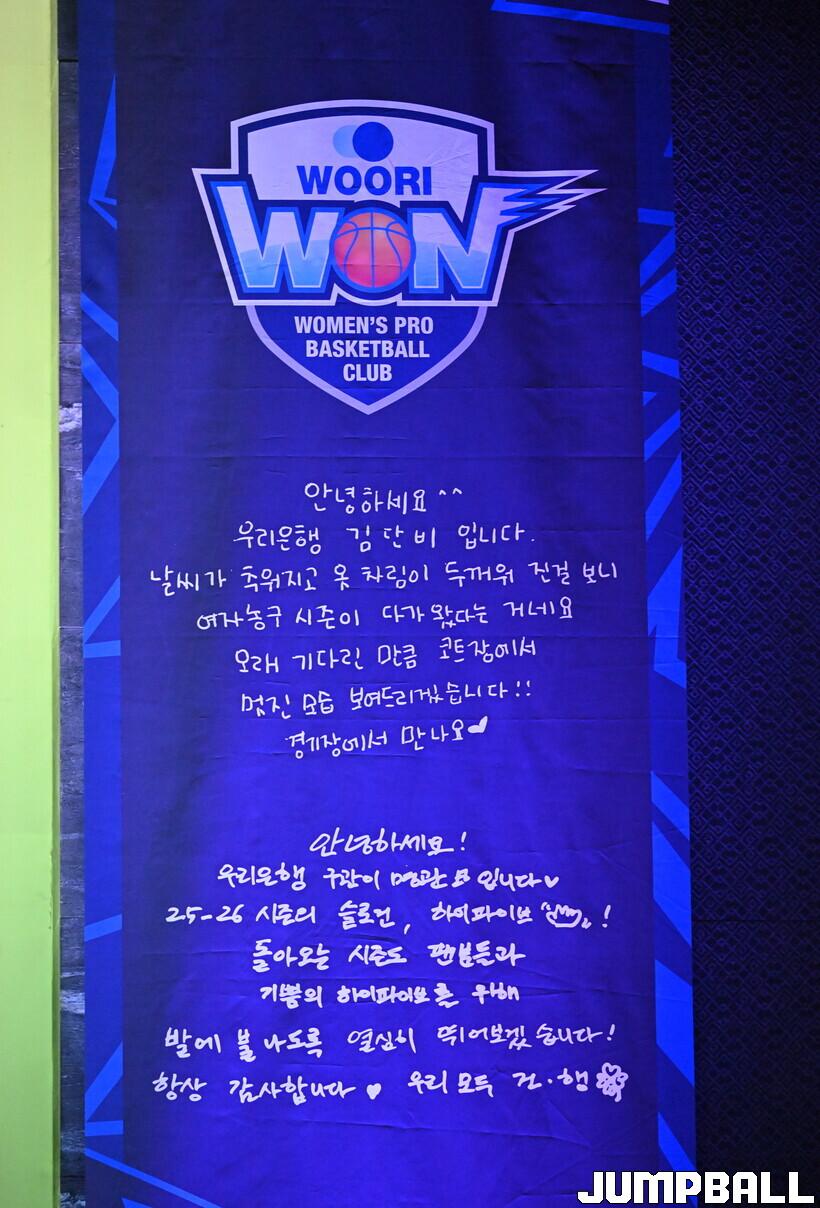 WOORI
WON
WOMEN'S PRO
BASKETBALL
CLUB
안녕하세요^^
우리은행 김단비 입니다.
날씨가 추워지고 옷 차림이 두꺼워 진걸 보니
여자농구 시즌이 다가 왔다는 거네요
오래 기다린 만큼 코트장에서
멋진 모습 보여드리겠습니다!!
경기장에서 만나요
안녕하세요!
우리은행 구관이 명관 입니다
25-26 시즌의 슬로건, 하이파이브 !
돌아오는 시즌도 팬분들과
기쁨의 하이파이브를 위해
발에 불 나도록 열심히 뛰어보겠습니다!
항상 감사합니다 우리 모두 건·행
JUMPBALL